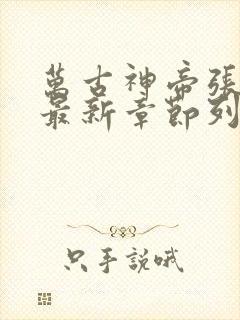 萬古神帝張
最新章節列
只手說哦